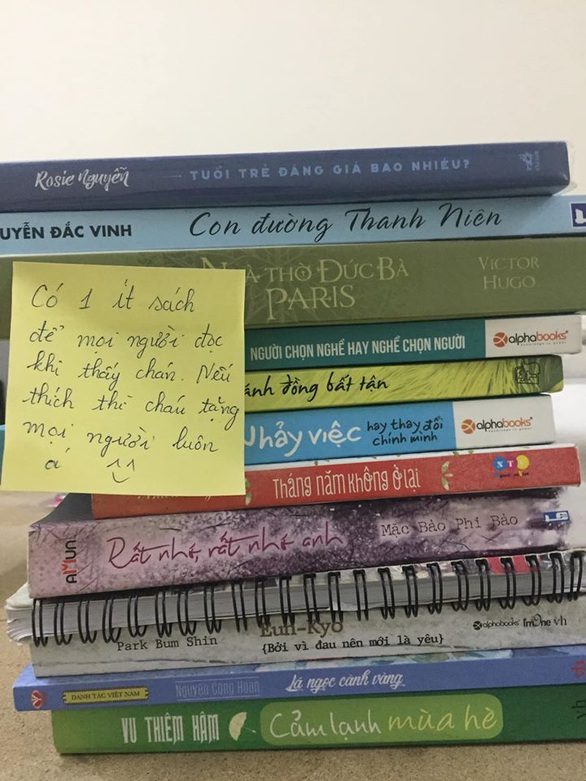 Rosie Nguyễn TUỔI TRẺ ĐÁNG GIÁ BAO NHIÊU?
UYỄN ĐẮC VINH Con đường Thanh Niên
NHÀ THỜ ĐỨC BÀ
PARIS
VICTOR
HUGO
Có 1 ít sách
để mọi người đọc
khi thấy chán. Nếu
thích thì cháu tặng
mọi người luôn
á ^^
NGƯỜI CHỌN NGHỀ HAY NGHỀ CHỌN NGƯỜI alphabooks
ánh đồng bất tận
Nhảy việc hay thay đổi
chính mình
alphabooks
Tháng năm không ở lại
AMUN Rất nhớ, rất nhớ anh Mặc Bảo Phi Bảo
Park Bum Shin Eun-Kyo
{Bởi vì đau nên mới là yêu}
alphabooks
DANH TÁC VIỆT NAM Nguyễn Công Hoan Lá ngọc cành vàng
VU THIÊM HÀM Cảm lạnh mùa hè